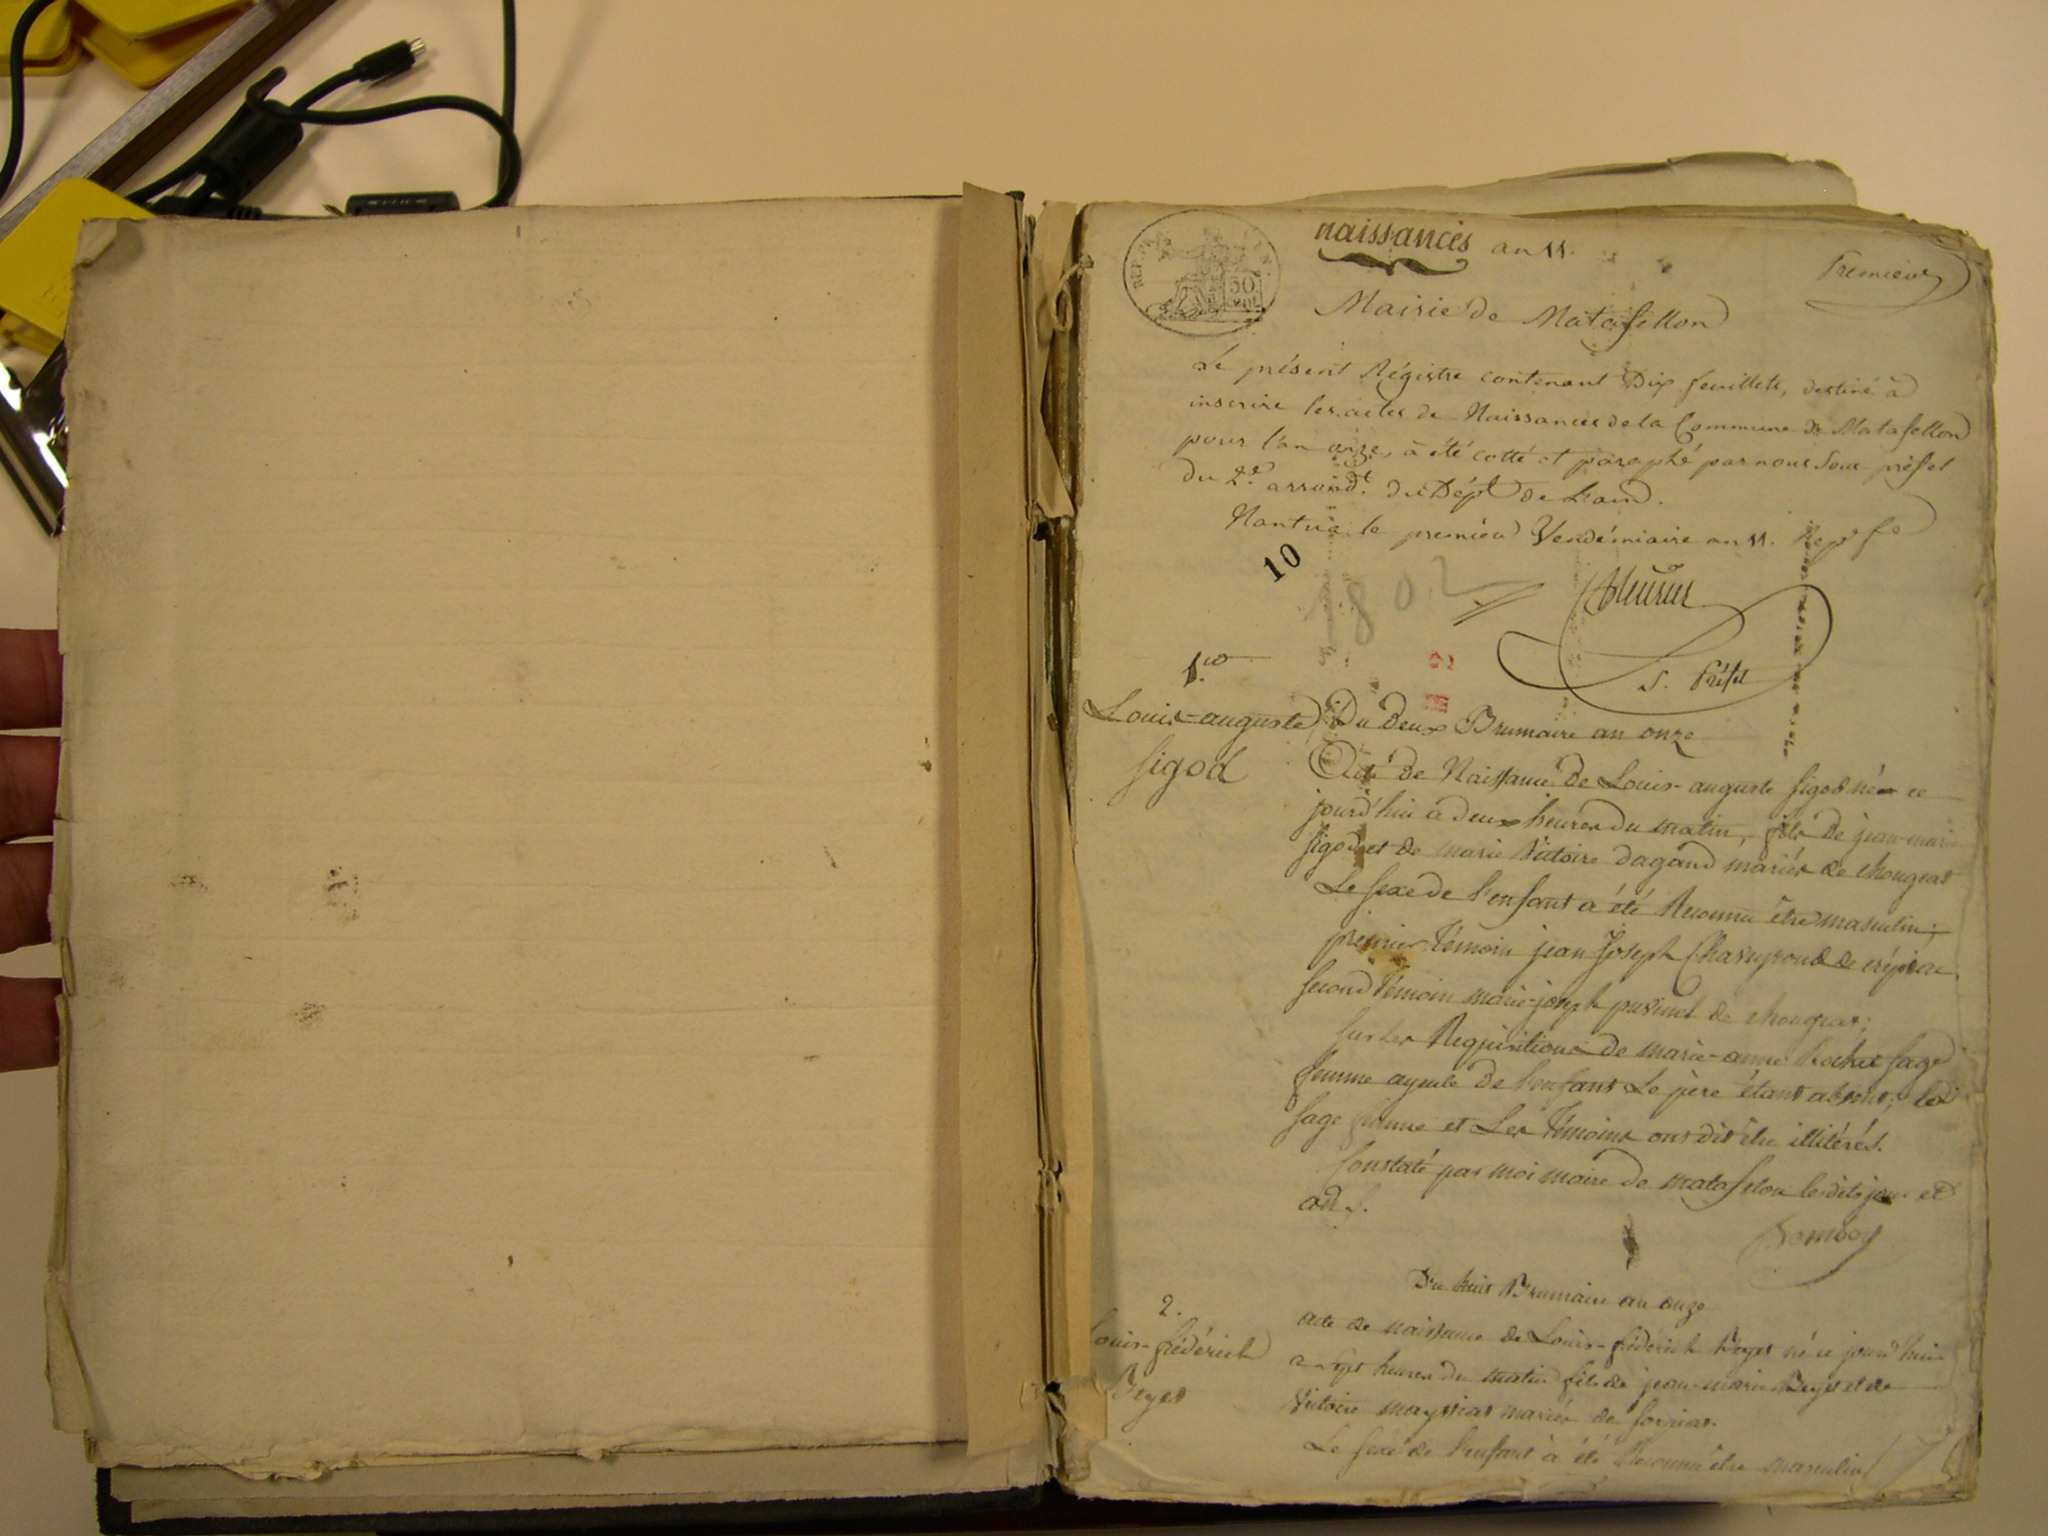 naissances an 11.
Premier
REP. FRA
50
CENT
Mairie de Matafellon
Le présent Régistre contenant Dix feuillets, destiné à
inscrire les actes de Naissances de la Commune de Matafellon
pour l'an onze, à été cotté et paraphé par nous Sous préfet
du 2e. arrondt. du Dépt. de L'ain.
Nantua le premier Vendémiaire an 11.
10
1802
S. Préfet
1er
Louis-auguste
sigod
Du Deux Brumaire an onze
Acte de Naissance de Louis-auguste sigod né ce
jourd'hui a deux heures du matin, fils de jean-marie
sigod et de marie victoire dagand mariés de chougeat
Le sexe de l'enfant a été Reconnu être masculin;
premier témoin jean Joseph de
second témoin marie-joseph de chougeat;
sur les Requisitions de marie-anne sage
femme ayeule de l'enfant Le père étant absent; la
sage femme et Les témoins ont dit être illitérés.
Constaté par moi maire de matafelon lesdits jour et
an.
2.
Louis-fréderich
Du huit Brumaire an onze
acte de naissance de Louis-fréderich né ce jourd'hui
a sept heures du matin fils de jean-marie et de
Victoire mariés de
Le sexe de l'enfant à été Reconnu être masculin